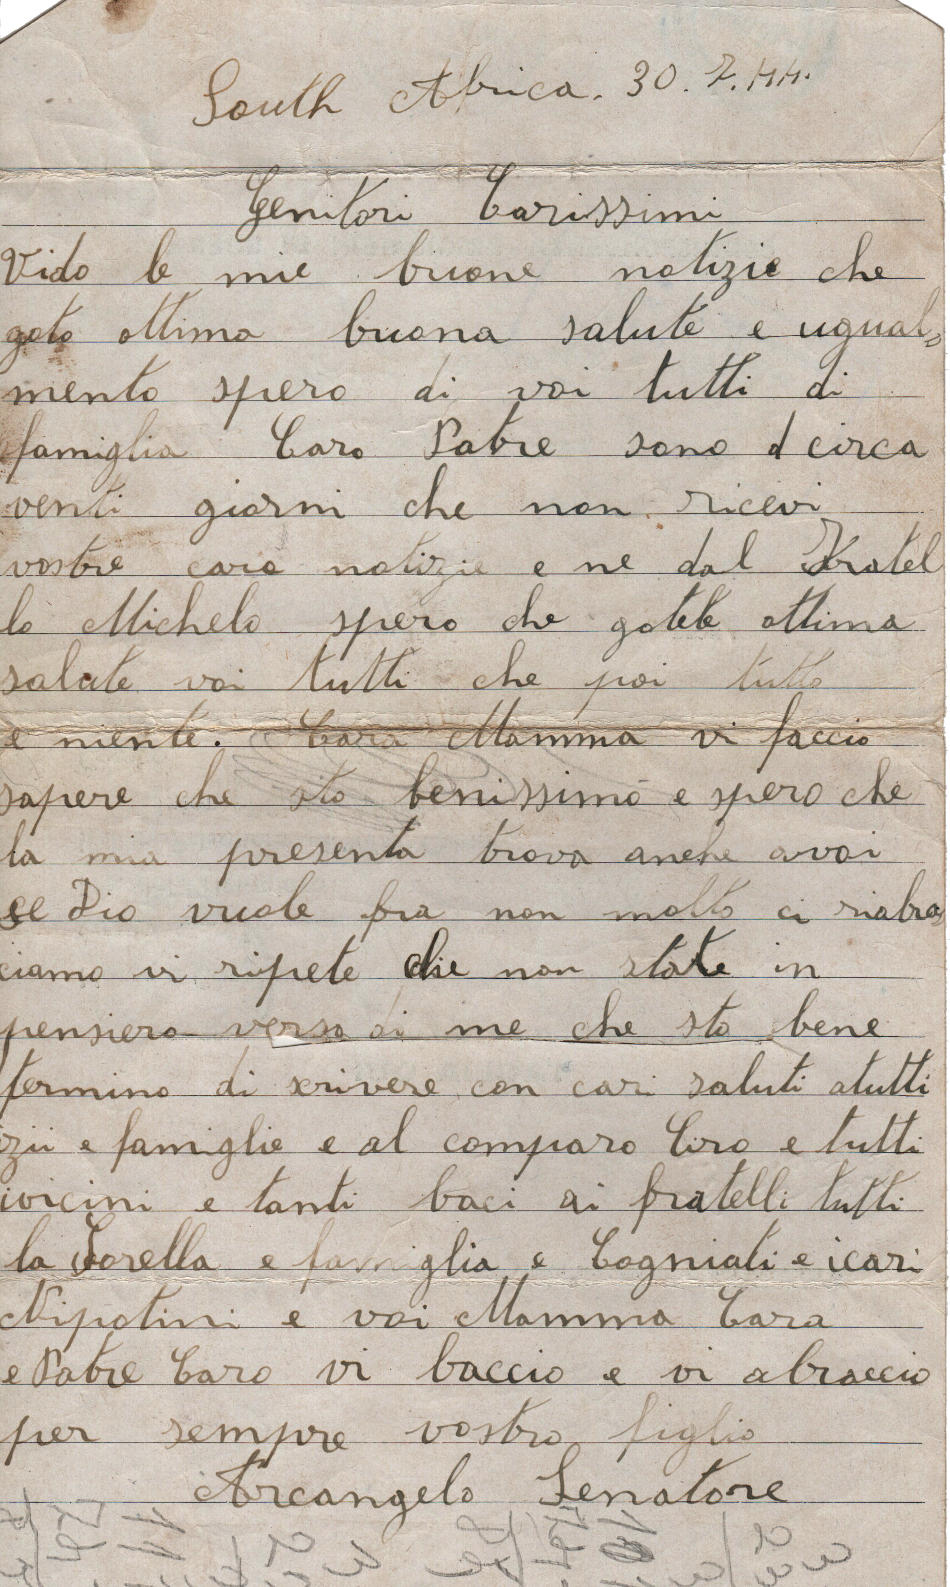 South Africa. 30. 7. 44.
Genitori Carissimi
Vido le mie buone notizie che
goto ottima buona salute e ugual=
mento spero di voi tutti di
famiglia Caro Patre sono d circa
venti giorni che non ricevi
vostre care notizie e ne dal Fratel
lo Michelo spero che gotete ottima
salute voi tutti che poi tutto
e niente. Cara Mamma vi faccio
sapere che sto benissimo e spero che
la mia presenta trova anche avoi
se Dio vuole fra non molto ci riabra=
ciamo vi ripete che non state in
pensiero verso di me che sto bene
termino di scrivere con cari saluti atutti
izii e famiglie e al comparo Ciro e tutti
ivicini e tanti baci ai fratelli tutti
la Sorella e famiglia e Cogniati e icari
Nipotini e voi Mamma Cara
e Patre Caro vi baccio e vi abraccio
per sempre vostro figlio
Arcangelo Senatore